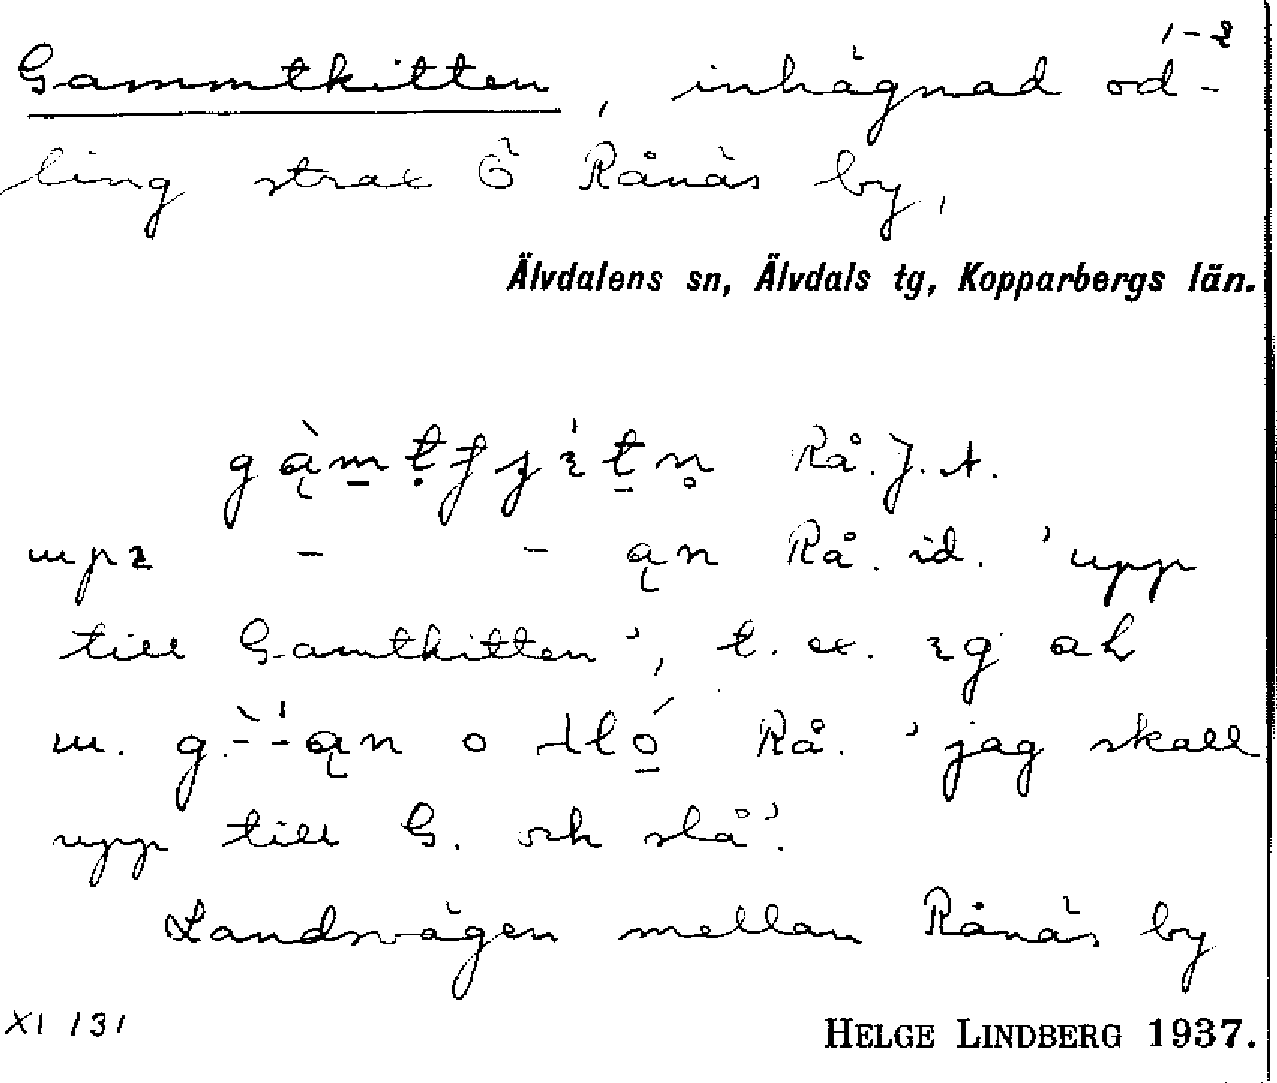 1-2
Gammtkitten, inhägnad od-
ling strax Ö Rånäs by,
Älvdalens sn, Älvdals tg, Kopparbergs län.
Rå. J. A.
Rå. id. 'upp
till Gamtkitten', t. ex.
Rå. 'jag skall
upp till G. och slå'.
Landsvägen mellan Rånäs by
XI 131
HELGE LINDBERG 1937.